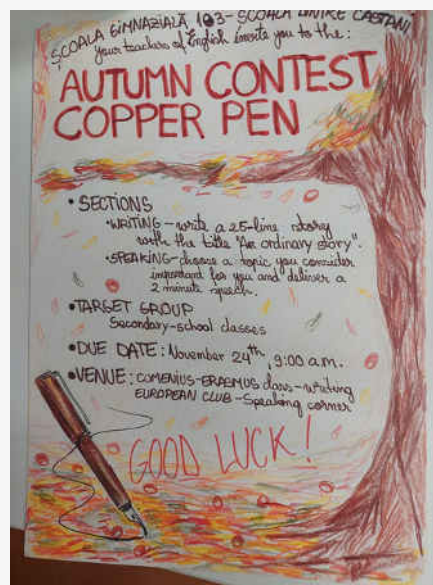 ȘCOALA GIMNAZIALĂ 103 - ȘCOALA DINTRE CASTANI
your teachers of English invite you to the:
AUTUMN CONTEST
COPPER PEN
• SECTIONS
• WRITING - write a 25-line story
with the title "An ordinary story".
• SPEAKING - choose a topic you consider
important for you and deliver a
2 minute speech.
• TARGET GROUP
Secondary-school classes
• DUE DATE: November 24th, 9:00 a.m.
• VENUE: COMENIUS-ERASMUS class - writing
EUROPEAN CLUB - Speaking corner
GOOD LUCK!